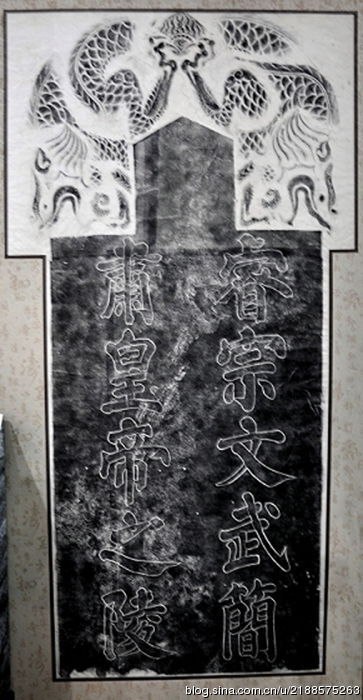 睿宗文武簡
肅皇帝之陵
blog.sina.com.cn/u/2188575263